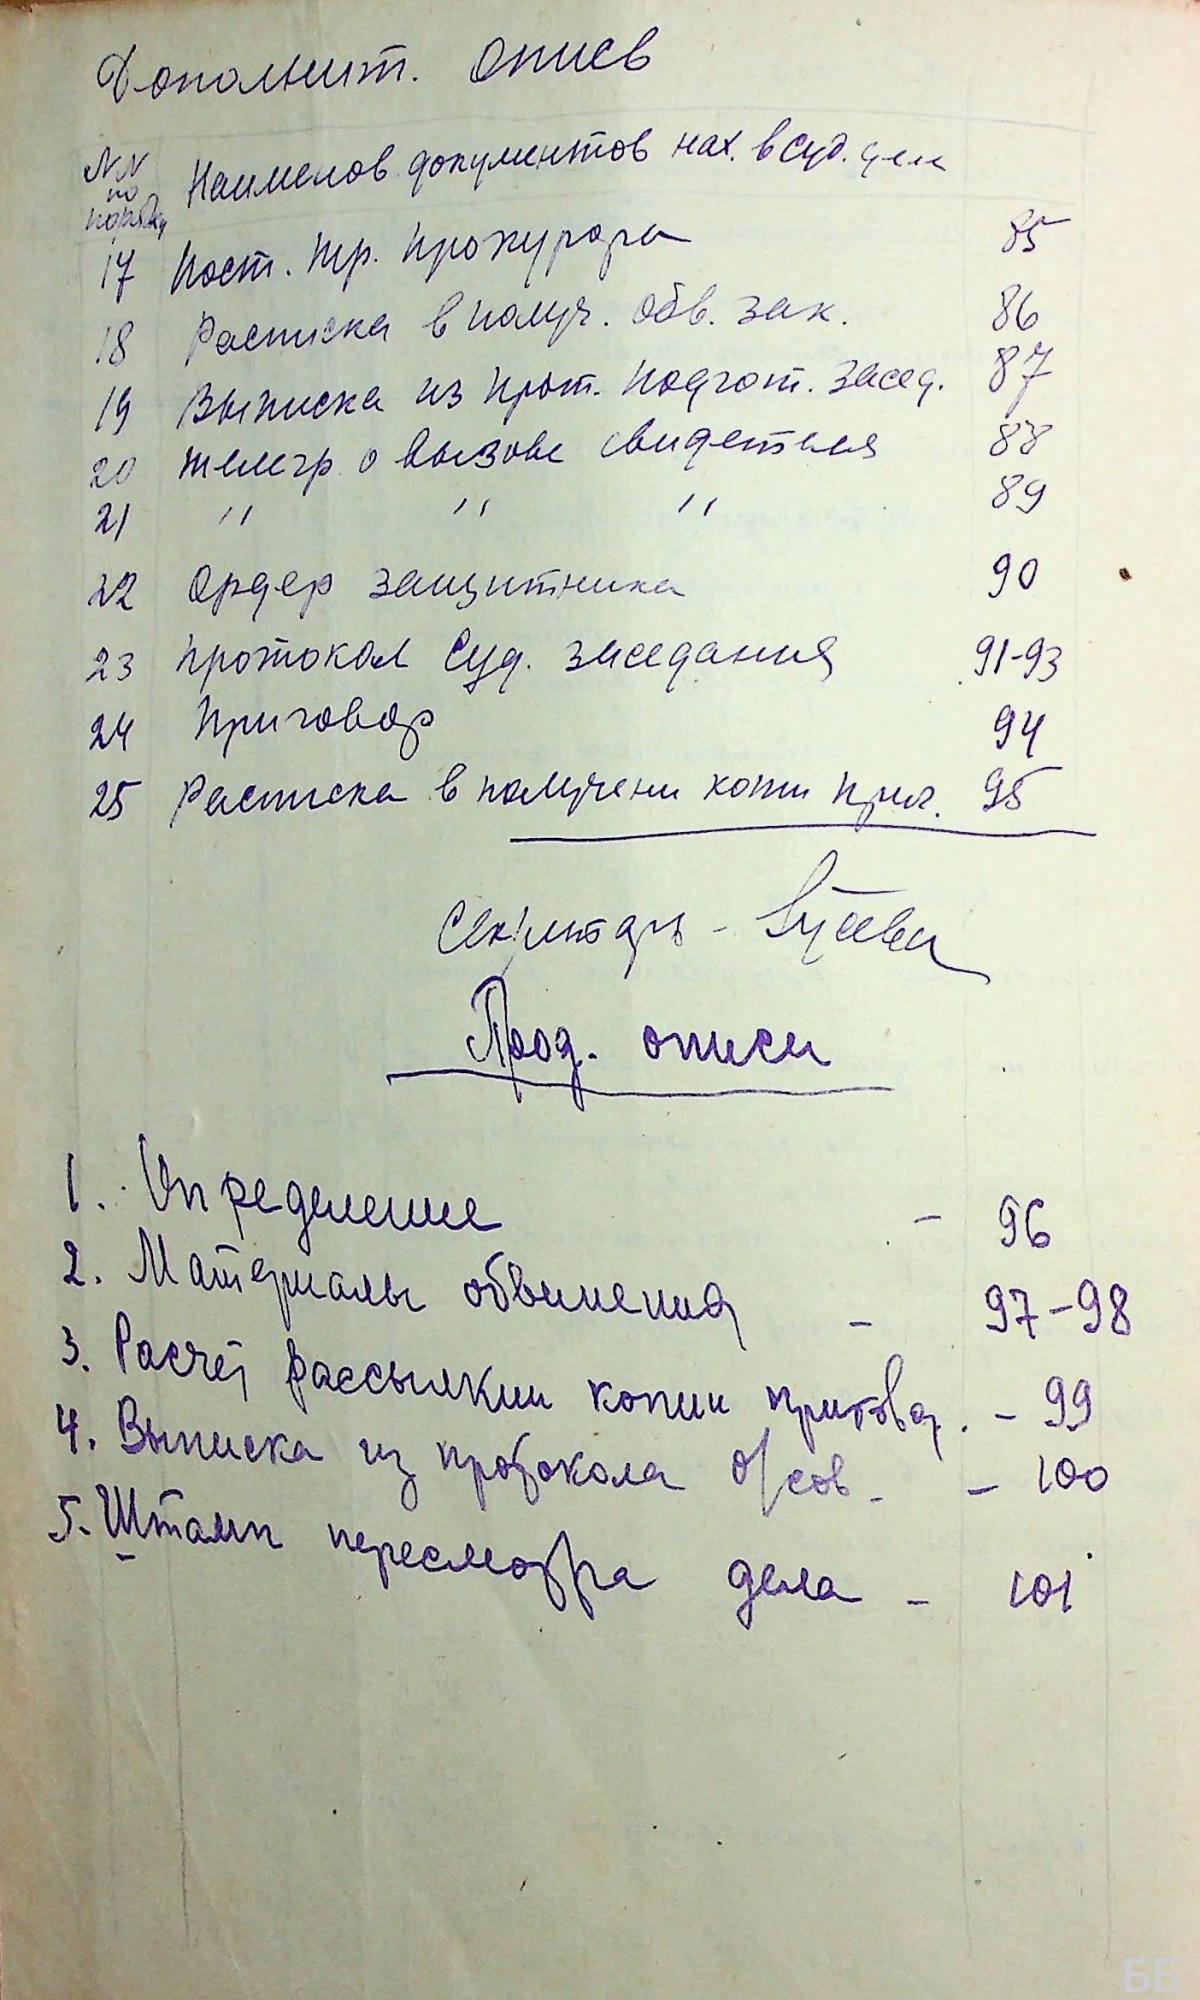 Дополнит. опись
NN по порядку Наименов. документов нах. в суд. деле
17 Пост. тр. прокурора 85
18 Расписка в получ. обв. зак. 86
19 Выписка из прот. подгот. засед. 87
20 Телегр о вызове свидетеля 88
21 " " " 89
22 Ордер защитника 90
23 Протокол суд. заседания 91-93
24 Приговор 94
25 Расписка в получени копи приг. 95
Секретарь -
Прод. описи
1. Определение - 96
2. Материалы обвинения - 97-98
3. Расчет рассылкии копии приговор. - 99
4. Выписка из протокола о/сов - - 100
5. Штамп пересмотра дела - 101
ББ